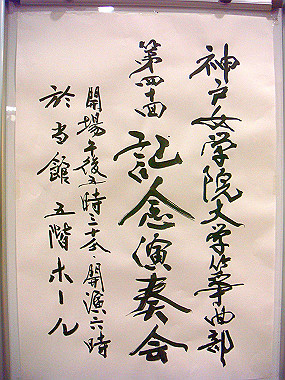 神戸女学院大学箏曲部
第四十回
記念演奏会
開場午後五時三十分・開演六時
於当館五階ホール